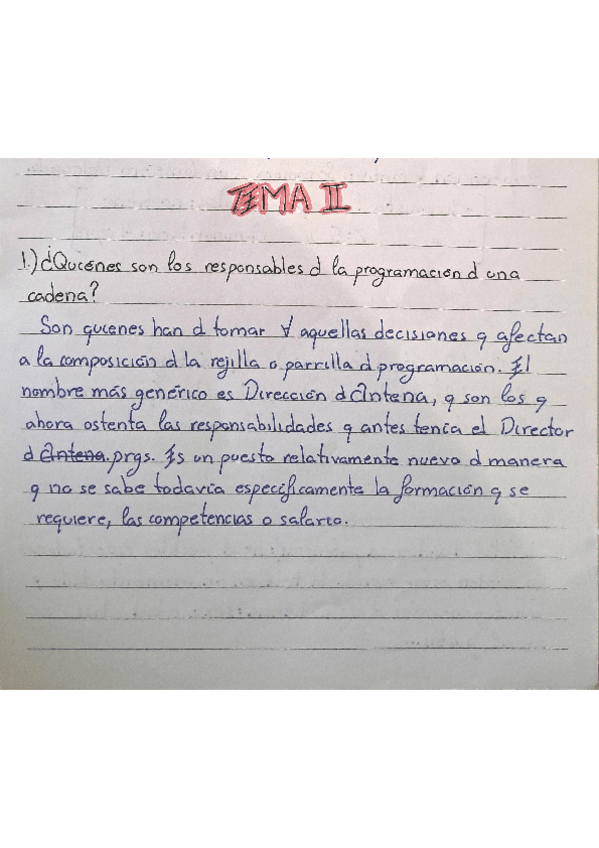 TEMA II
1.) ¿Quiénes son los responsables d la programación d una
cadena?
Son quienes han d tomar ∀ aquellas decisiones q afectan
a la composición d la rejilla o parrilla d programación. El
nombre más genérico es Dirección d Antena, q son los q
ahora ostenta las responsabilidades q antes tenía el Director
d Antena. prgs. Es un puesto relativamente nuevo d manera
q no se sabe todavía específicamente la formación q se
requiere, las competencias o salario.